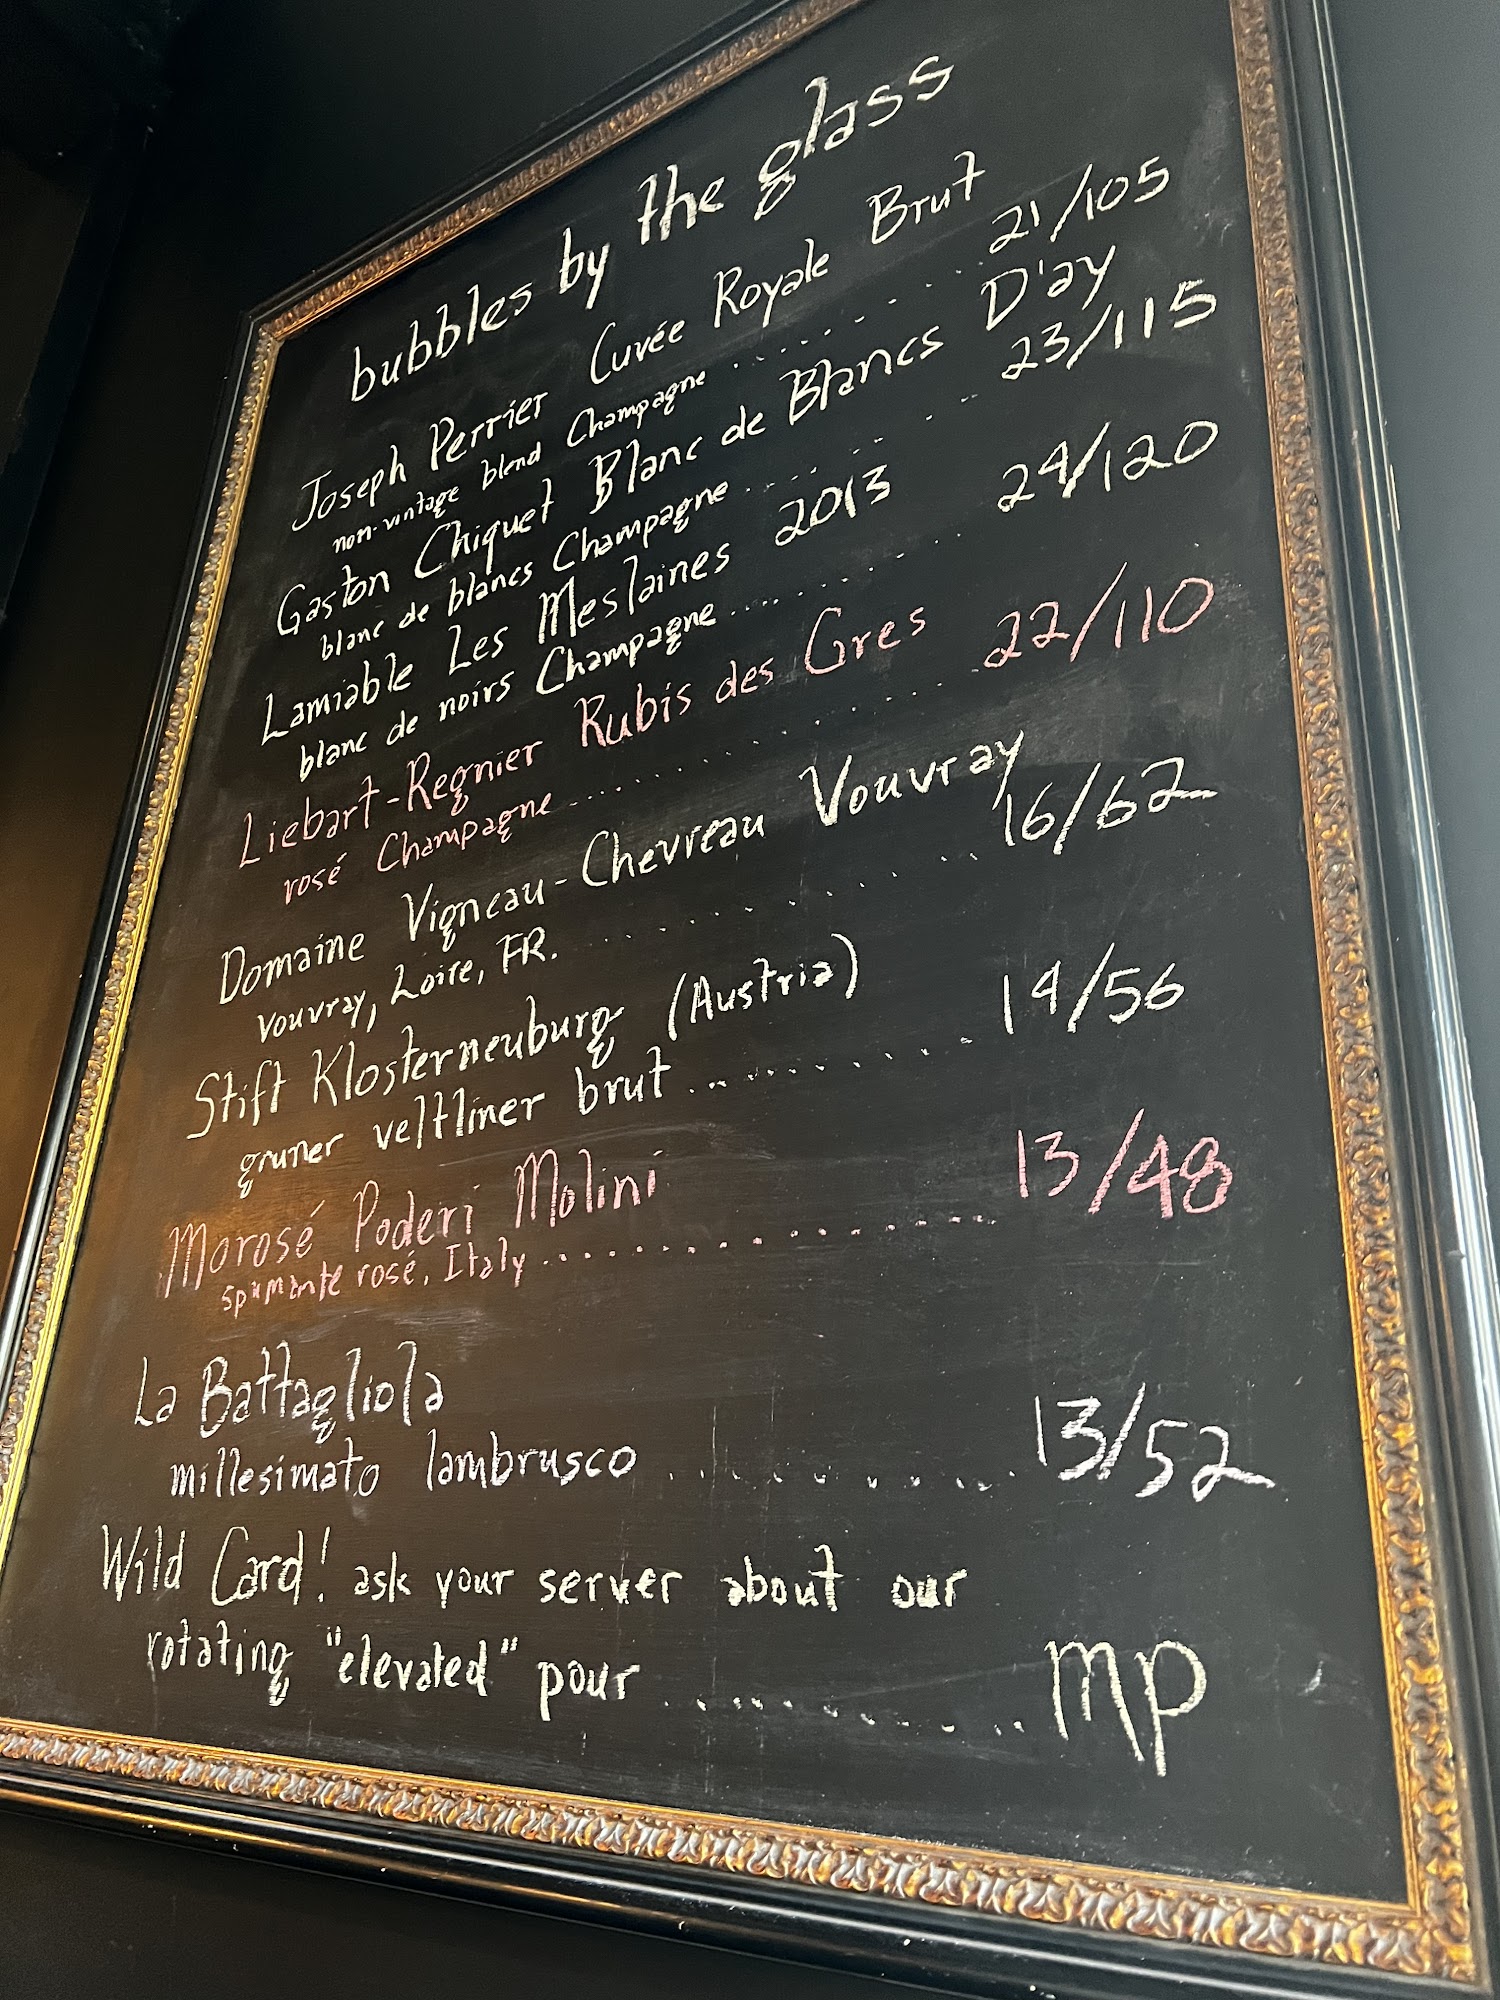 bubbles by the glass
Joseph Perrier Cuvée Royale Brut
non-vintage blend Champagne ........... 21/105
Gaston Chiquet Blanc de Blancs D'ay
blanc de blancs Champagne ......... 23/115
Lamiable Les Meslaines 2013
blanc de noirs Champagne .......... 24/120
Liebart-Regnier Rubis des Gres
rosé Champagne ................ 22/110
Domaine Vigneau-Chevreau Vouvray
vouvray, Loire, FR. ............. 16/62
Stift Klosterneuburg (Austria)
gruner veltliner brut .......... 14/56
Morosé Poderi Molini
spumante rosé, Italy ............... 13/48
La Battagliola
millesimato lambrusco ........... 13/52
Wild Card! ask your server about our
rotating "elevated" pour ............ mp